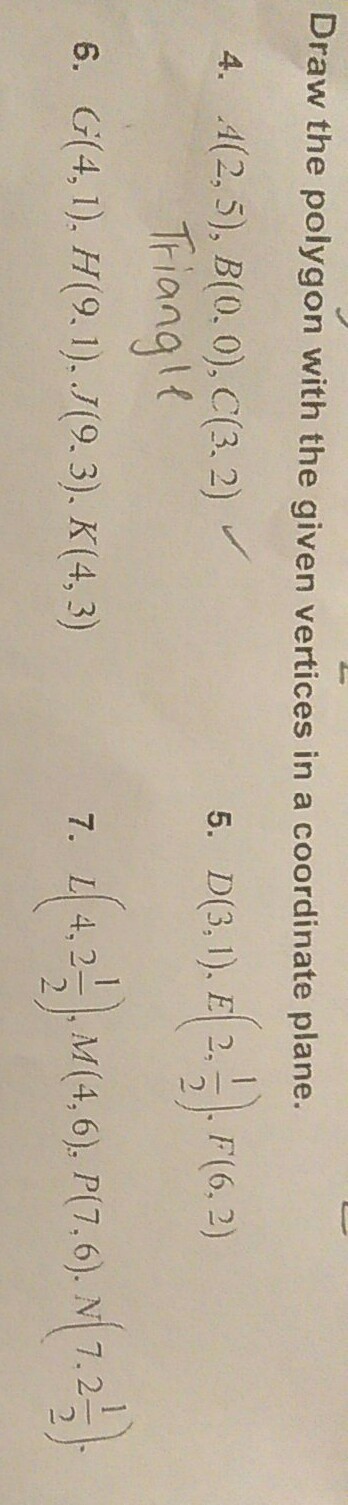 Draw the polygon with the given vertices in a coordinate plane.
4. A(2, 5), B(0, 0), C(3, 2) ✓
Triangle
5. D(3, 1), E(2, 1/2), F(6, 2)
6. G(4, 1), H(9, 1), J(9, 3), K(4, 3)
7. L(4, 2 1/2), M(4, 6), P(7, 6), N(7, 2 1/2).